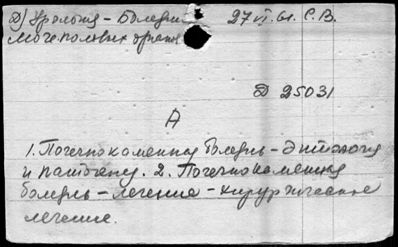 Д) Урология - Болезни 27 VI. 61. С.В.
мочеполовых органов
Д 25031
А
1. Почечнокаменная болезнь - Этиология
и патогенез. 2. Почечнокаменная
болезнь - лечение - хирургическое
лечение.